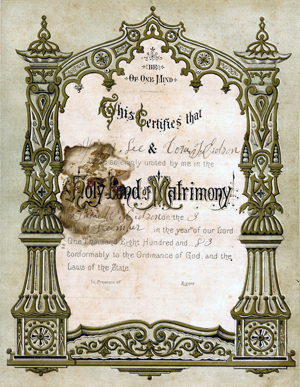 BE
OF ONE MIND
This Certifies that
Lee &
solemnly united by me in the
Holy Band of Matrimony
on the 3
in the year of our Lord
One Thousand Eight Hundred and 83
conformably to the Ordinance of God, and the
Laws of the State.
In Presence of Signed